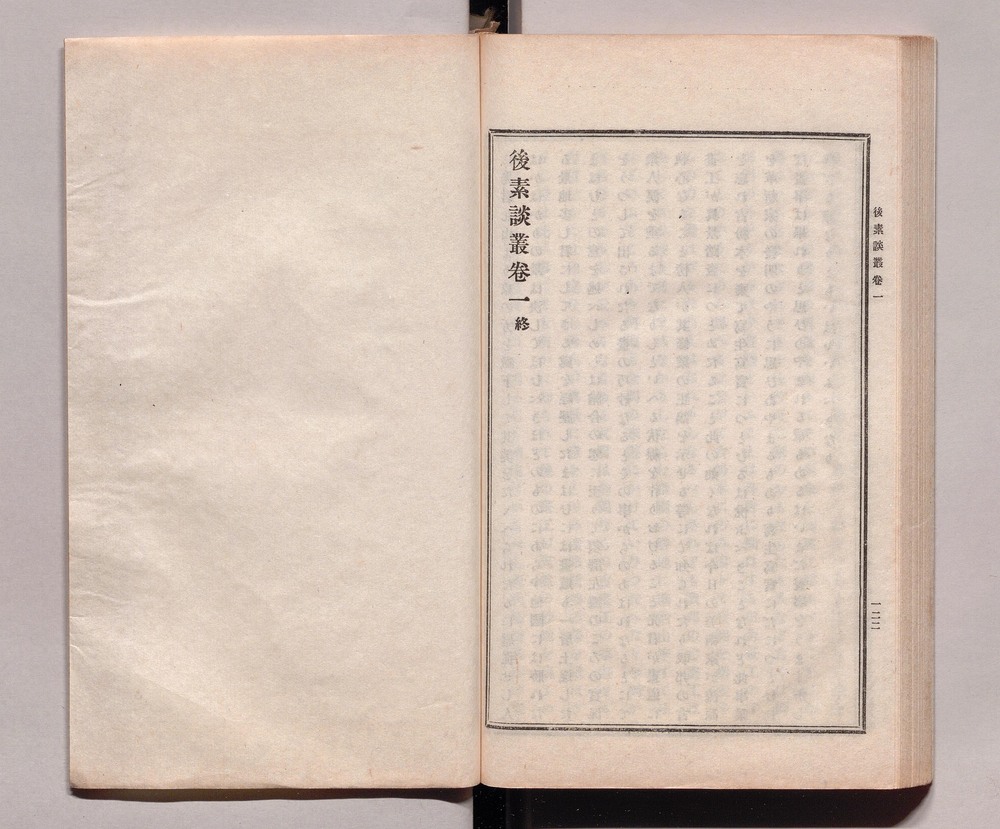 後素談叢卷一
一二二
後素談叢卷一終